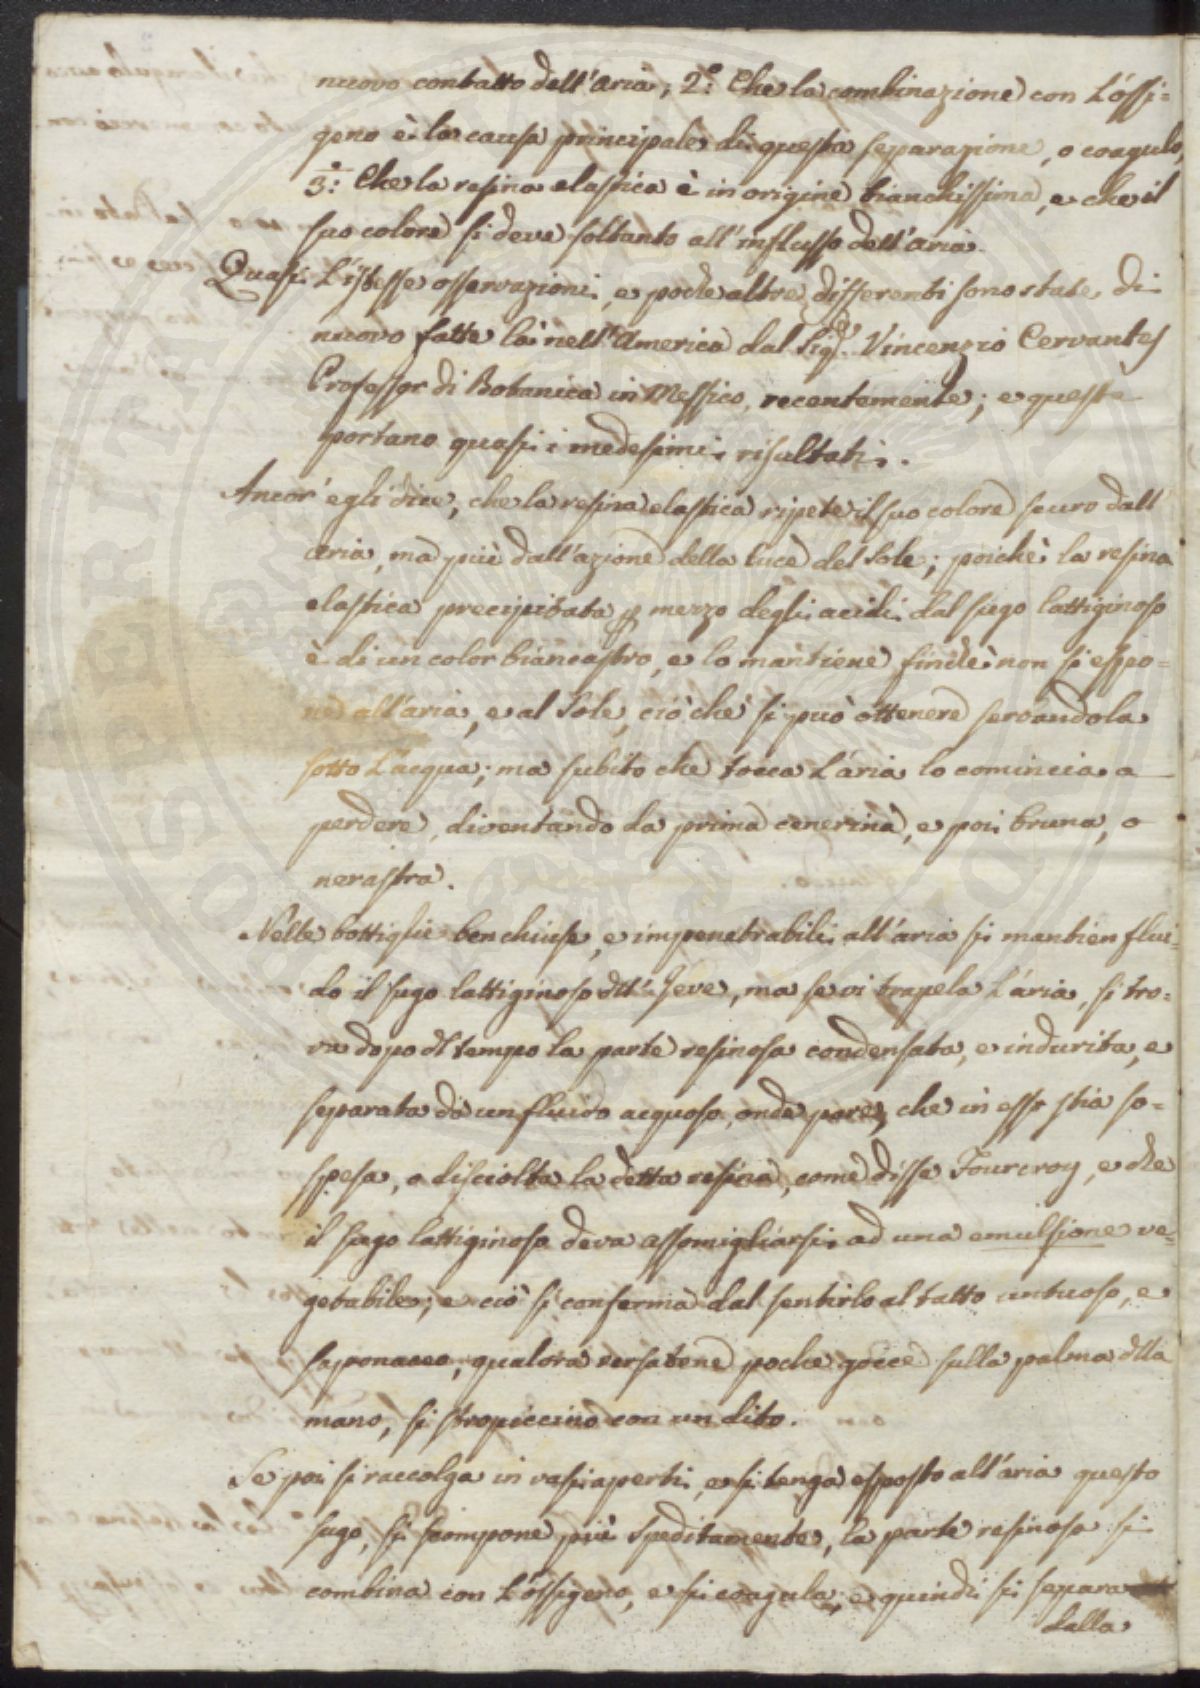 nuovo contatto dell'aria; 2.° Che la combinazione con l'ossi=
geno è la causa principale di questa separazione, o coagulo,
3.° Che la resina elastica è in origine bianchissima, e che il
suo colore si deve soltanto all'influsso dell'aria.
Quasi l'istesse osservazioni, e poche altre differenti sono state di
nuovo fatte là nell'America dal Sig.r Vincenzio Cervantes
Professor di Botanica in Messico, recentemente; e queste
portano quasi i medesimi risultati.
Ancor'egli dice, che la resina elastica ripete il suo colore scuro dall'
aria, ma più dall'azione della luce del Sole; poichè la resina
elastica precipitata p mezzo degli acidi dal sugo lattiginoso
è di un color biancastro, e lo mantiene finchè non si espo=
ne all'aria, e al Sole, ciò chè si può ottenere serbandola
sotto l'acqua; ma subito che tocca l'aria lo comincia a
perdere, diventando da prima cenerina, e poi bruna, o
nerastra.
Nelle bottiglie ben chiuse, e impenetrabili all'aria si mantien flui=
do il sugo lattiginoso dll'Jeve, ma se vi trapela l'aria, si tro=
va dopo dl tempo la parte resinosa condensata, e indurita, e
separata da un fluido acquoso, onde pare, che in esso stia so=
spesa, o disciolta la detta resina, come disse Fourcroy, e che
il sugo lattiginoso deva assomigliarsi ad una emulsione ve=
getabile; e ciò si conferma dal sentirlo al tatto untuoso, e
saponaceo, qualora versatene poche gocce sulla palma dlla
mano, si stropiccino con un dito.
Se poi si raccolga in vasi aperti, e si tenga esposto all'aria questo
sugo, si scompone più speditamente, la parte resinosa si
combina con l'ossigeno, e si coagula; e quindi si separa
dalla
ROSPERITA